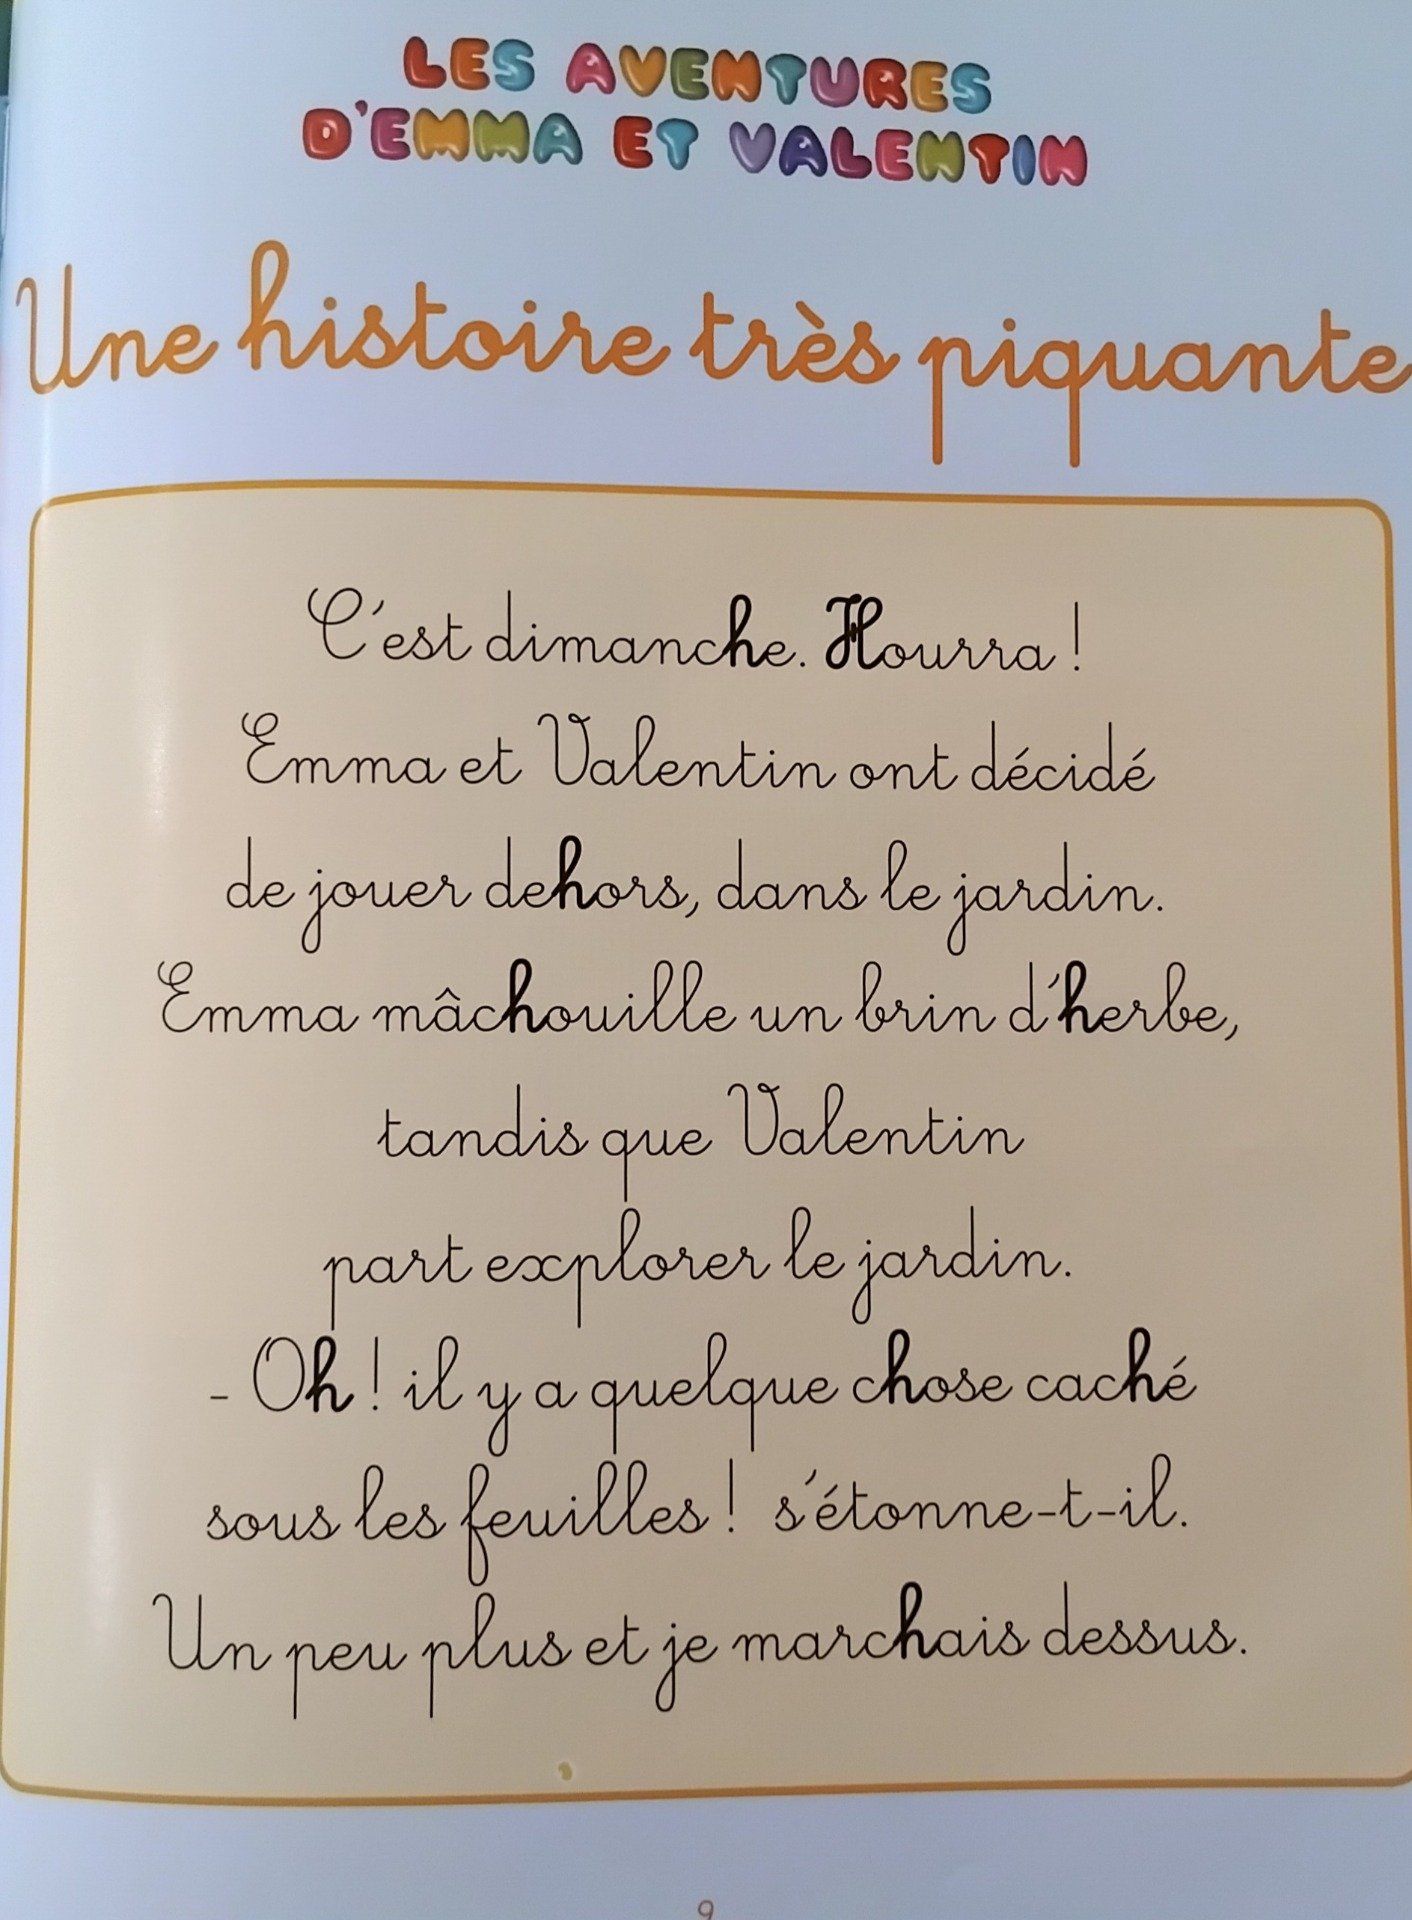 LES AVENTURES
D'EMMA ET VALENTIN
Une histoire très piquante
C'est dimanche. Hourra !
Emma et Valentin ont décidé
de jouer dehors, dans le jardin.
Emma mâchouille un brin d'herbe,
tandis que Valentin
part explorer le jardin.
- Oh ! il y a quelque chose caché
sous les feuilles ! s'étonne-t-il.
Un peu plus et je marchais dessus.
9